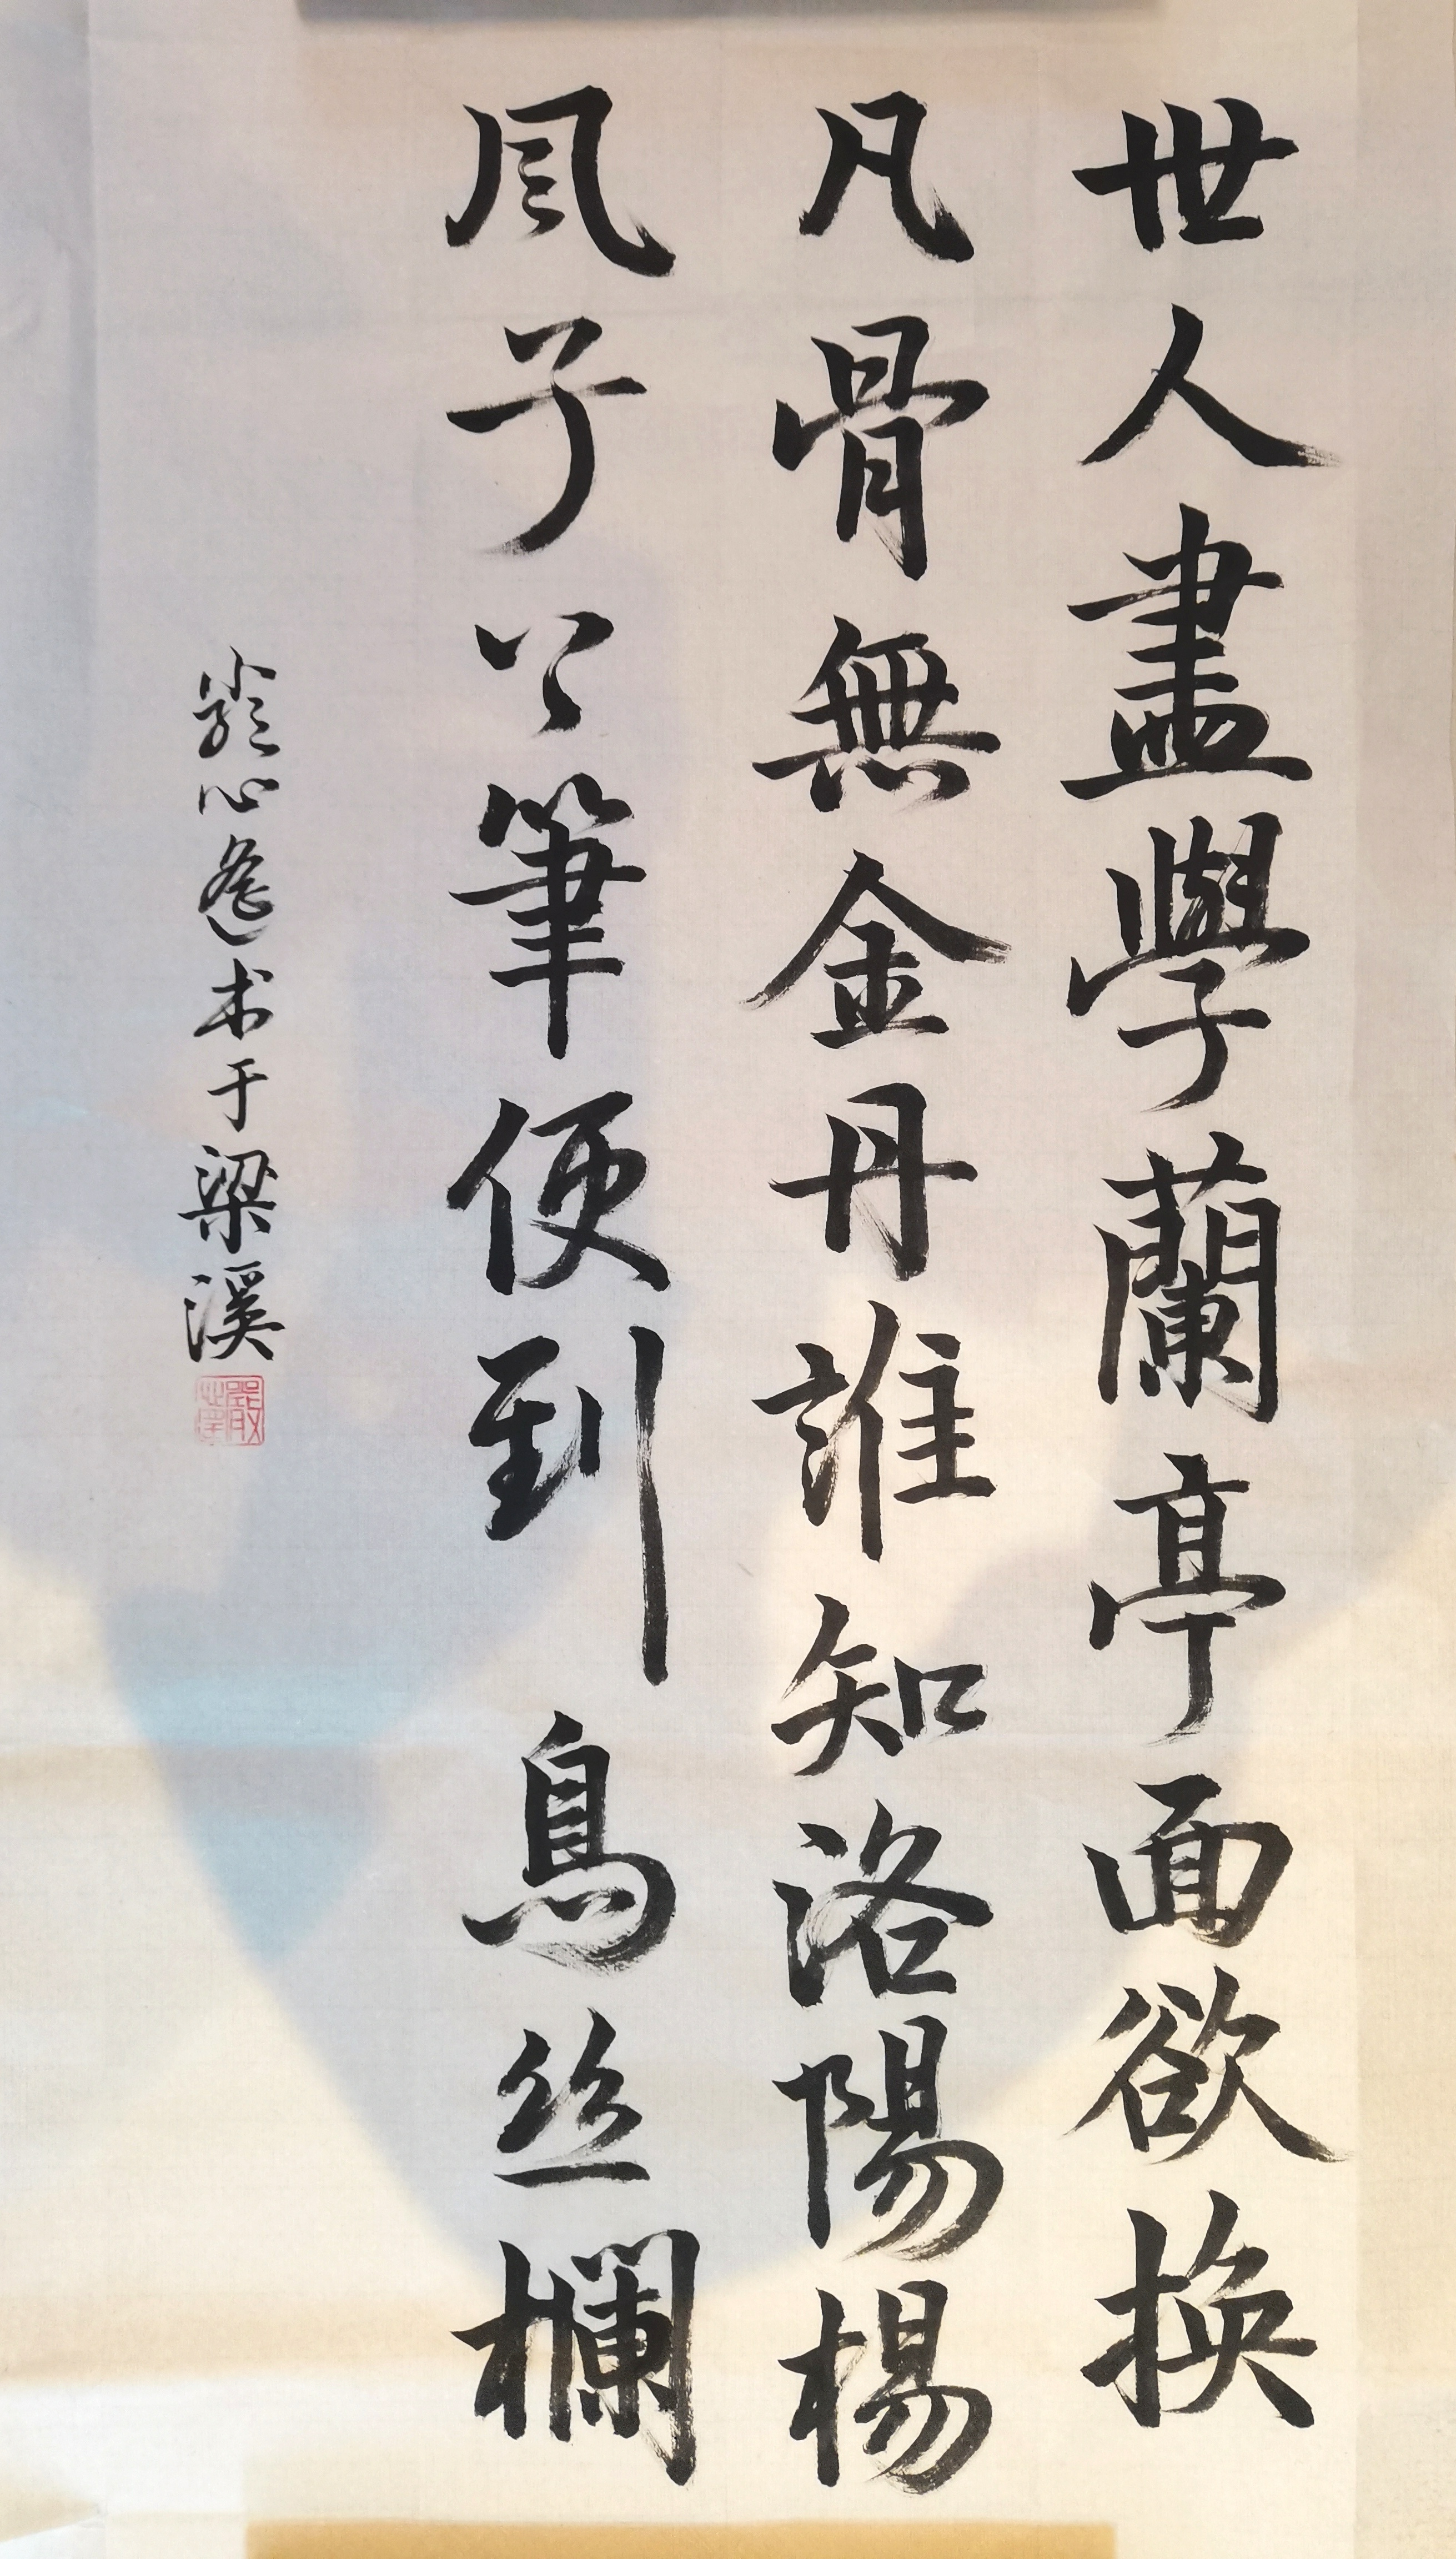 世人盡學蘭亭面欲換
凡骨無金丹誰知洛陽楊
風子下筆便到烏丝欄
心于梁溪